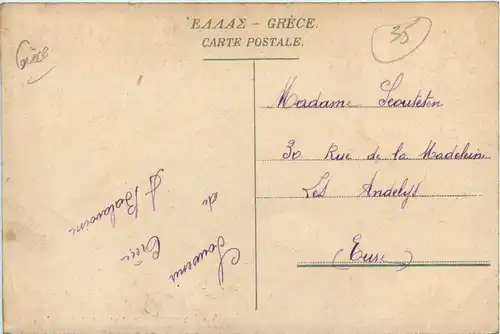 ἙΛΛΑΣ – GRÈCE.
CARTE POSTALE.
Grèce
35
Madame Scouteten
30 Rue de la Madeleine
Les Andelys
(Eure)
Souvenir
de
Grèce